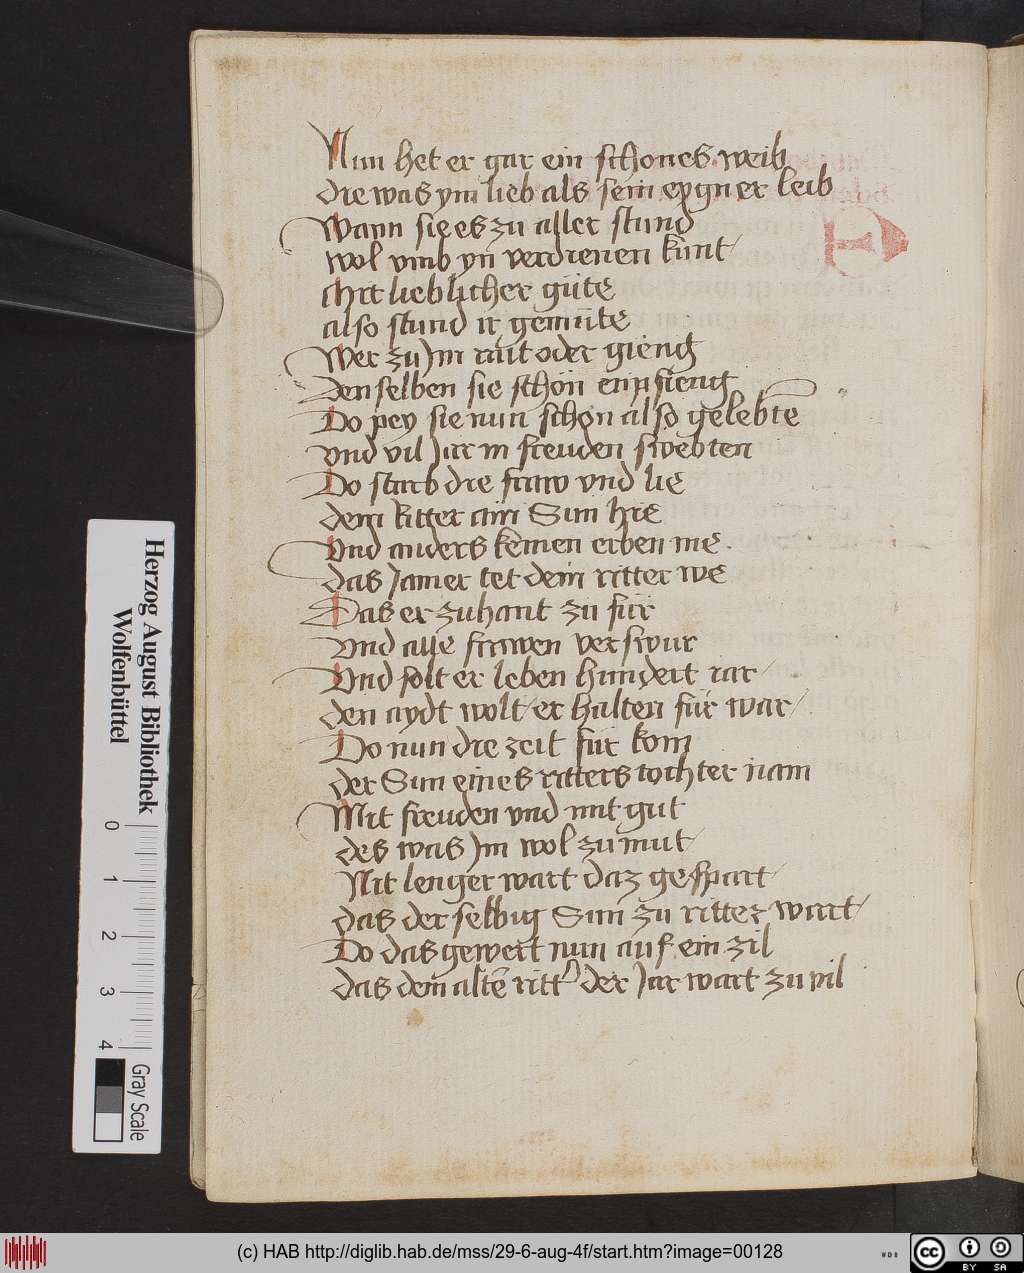 Nun het er gar ein schones weib
die was ym lieb als sein eygner leib
Wann sie es zu aller stund
wol vmb yn verdienen kunt
Mit lieblicher güte
also stund ir gemüte
Wer zu Jm rait oder gieng
Den selben sie schon enpfieng
Do pey sie nun schon also gelebte
vnd vil Jar in freuden swebten
Do starb die fraw vnd lie
dem ritter ain Sun hie
Vnd anders keinen erben nie
das Jamer tet dem ritter we
Das er zuhant zu fur
Vnd alle frawen verswur
Vnd solt er leben hundert iar
den aydt wolt er halten für war
Do nun die zeit für kom
der Sun eines ritters tochter nam
Mit freuden vnd mit gut
des was Jm wol zu mut
Nit lenger wart daz gespart
das der selbig Sun zu ritter wart
Do das gewert nun auf ein zil
das dem alte ritt der Jar wart zu vil
Herzog August Bibliothek
Wolfenbüttel
0 1 2 3 4
Gray Scale
(c) HAB http://diglib.hab.de/mss/29-6-aug-4f/start.htm?image=00128
WDB
cc BY SA